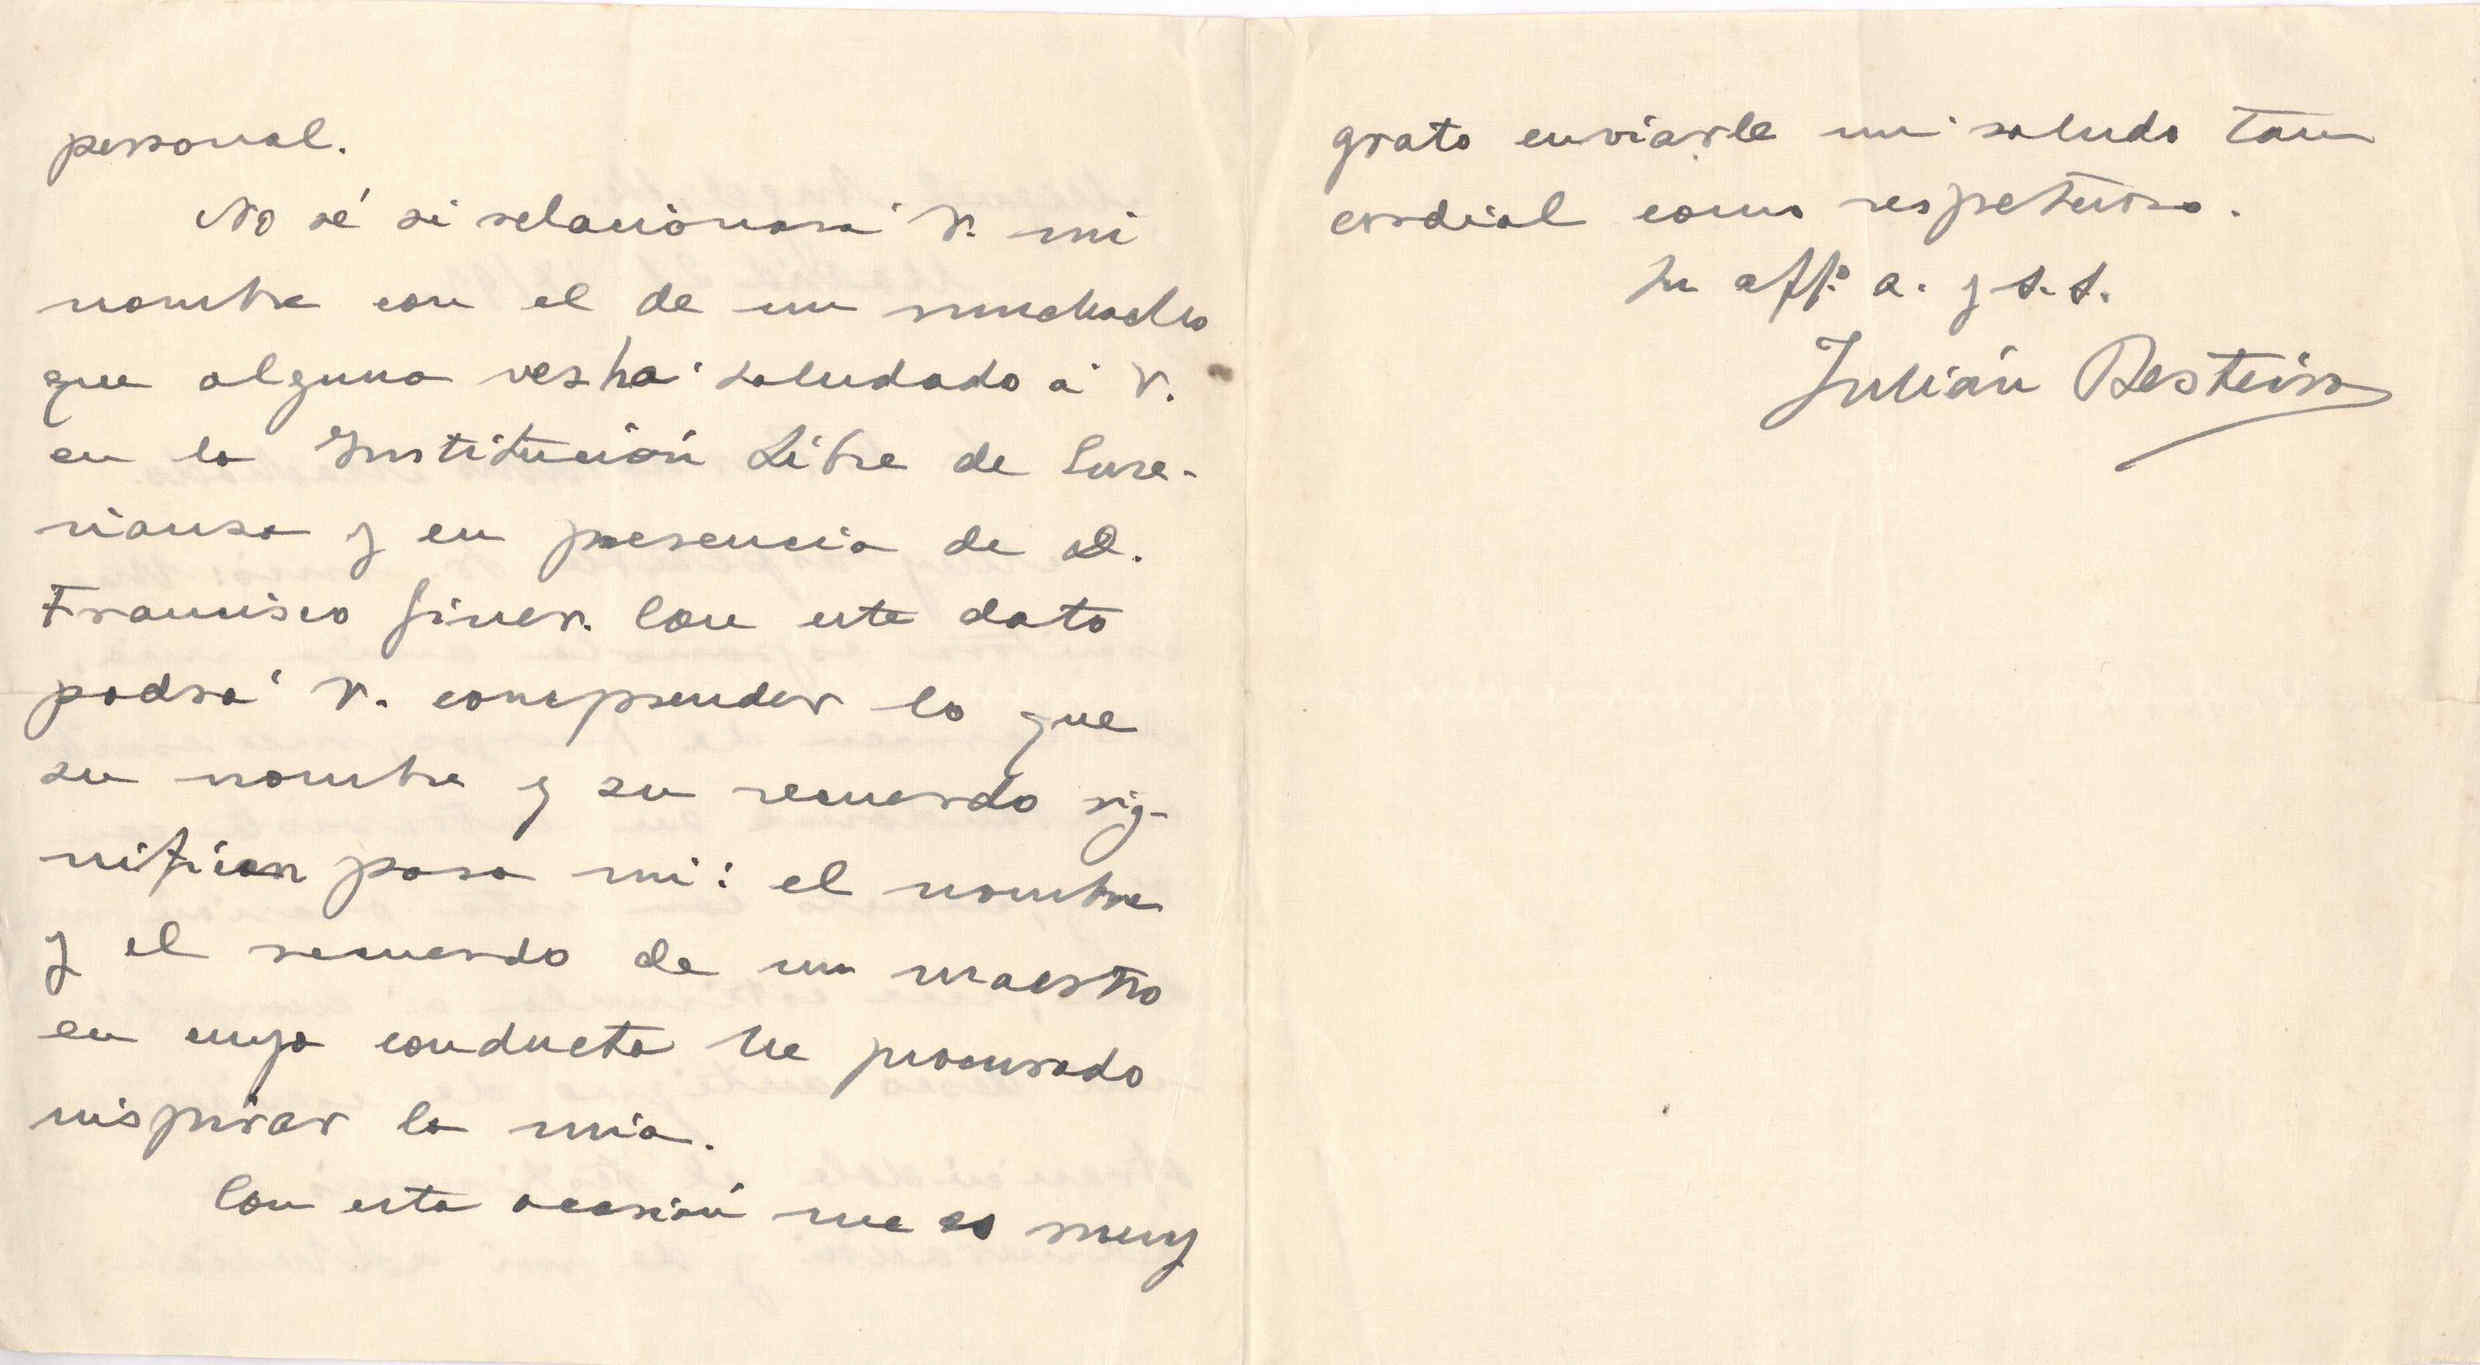 personal.
No sé si relacionará V. mi
nombre con el de un muchacho
que alguna vez ha saludado á V.
en la Institución Libre de Ense-
ñanza y en presencia de D.
Francisco Giner. Con este dato
podrá V. comprender lo que
su nombre y su recuerdo sig-
nifican para mí: el nombre
y el recuerdo de un maestro
en cuya conducta he procurado
inspirar la mia.
Con esta ocasión me es muy
grato enviarle mi saludo tan
cordial como respetuoso.
Su affº a. y s. s.
Julián Besteiro